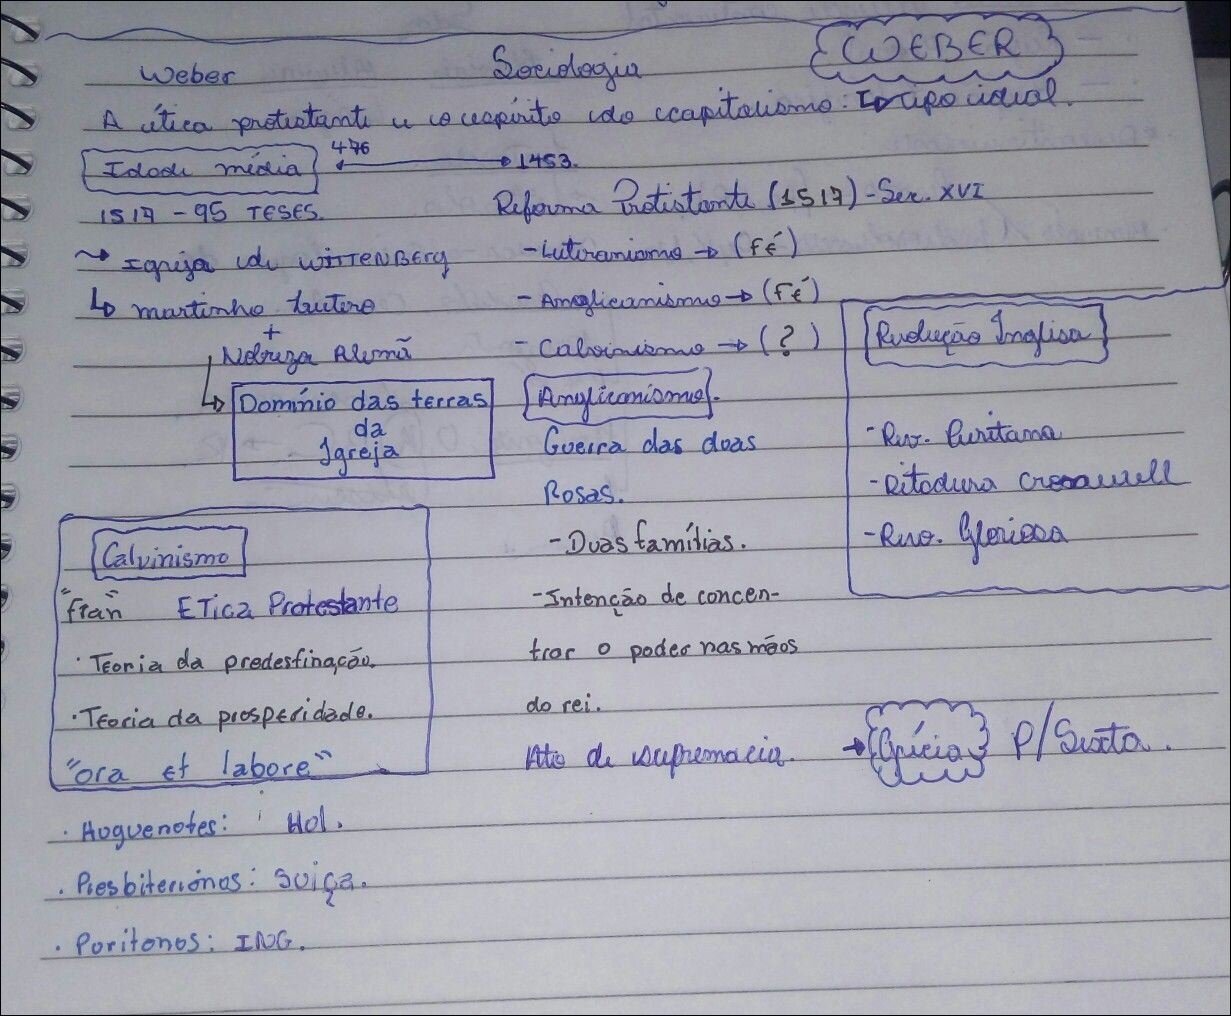 Weber Sociologia WEBER
A ética protestante e o espírito do capitalismo: tipo ideal.
Idade média 476 1453.
1517 - 95 TESES. Reforma Protestante (1517) - Sec. XVI
Igreja de WITTENBERG - Luteranismo → (fé)
↳ martinho Lutero - Anglicanismo → (fé)
+
Nobreza Alemã - Calvinismo → (?) Revolução Inglesa
↳ Domínio das terras Anglicanismo.
da Guerra das duas - Rev. Puritana
Igreja Rosas. - Ditadura Cromwell
Calvinismo - Duas famílias. - Rev. Gloriosa
"fran" ETICa Protestante - Intenção de concen-
· Teoria da predestinação. trar o poder nas mãos
· Teoria da prosperidade. do rei.
"ora et labore" Ato de supremacia. → Grécia P/ Sexta.
· Huguenotes: Hol.
· Presbiterianos: Suiça.
· Puritanos: ING.